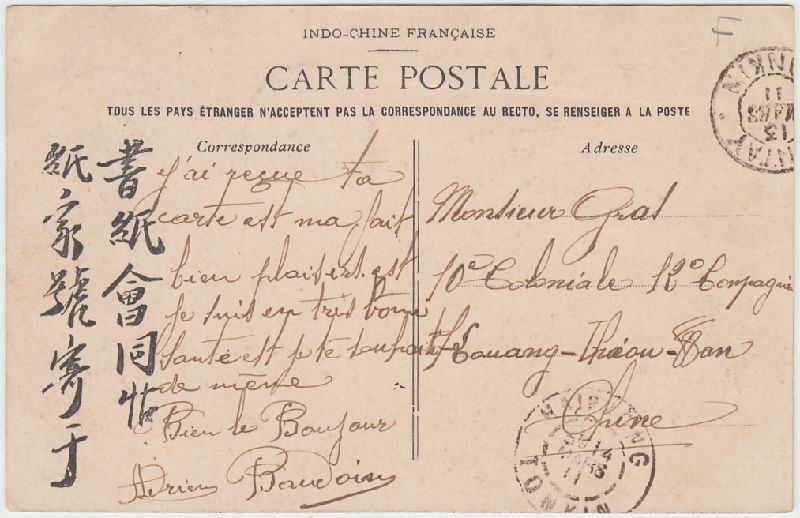 INDO-CHINE FRANÇAISE
CARTE POSTALE
TOUS LES PAYS ÉTRANGER N'ACCEPTENT PAS LA CORRESPONDANCE AU RECTO, SE RENSEIGER A LA POSTE
Correspondance
j'ai reçue ta
carte est ma fait
bien plaisers est
je suis en tres bonne
Santé est je te souhaite
de même
Bien le Bonjour
Adrien Baudoin
Adresse
Monsieur Gras
10e Coloniale 12e Compagnie
Kouang-Tchéou-Wan
Chine
書紙會同帖
紙家號寄于
TONKIN
13 MARS 11
HAIPHONG
TONKIN
14 MARS 11